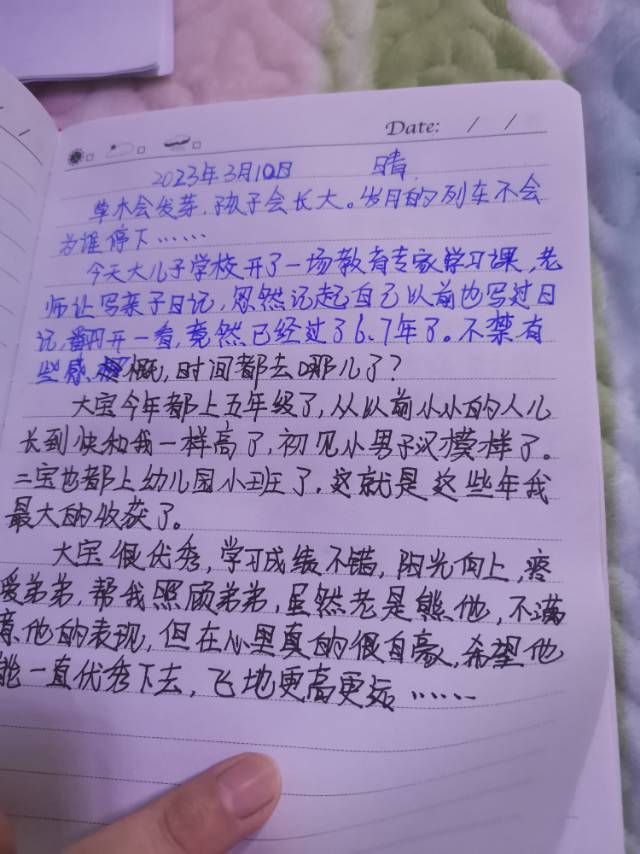 Date: / /
2023年3月10日 晴
草木会发芽,孩子会长大。岁月的列车不会
为谁停下……
今天大儿子学校开了一场教育专家学习课,老
师让写亲子日记,忽然记起自己以前也写过日
记,翻开一看,竟然已经过了6.7年了。不禁有
些感概,时间都去哪儿了?
大宝今年都上五年级了,从以前小小的人儿
长到快和我一样高了,初见小男子汉模样了。
二宝也都上幼儿园小班了,这就是这些年我
最大的收获了。
大宝很优秀,学习成绩不错,阳光向上,疼
爱弟弟,帮我照顾弟弟,虽然老是熊他,不满
意他的表现,但在心里真的很自豪,希望他
能一直优秀下去,飞地更高更远……